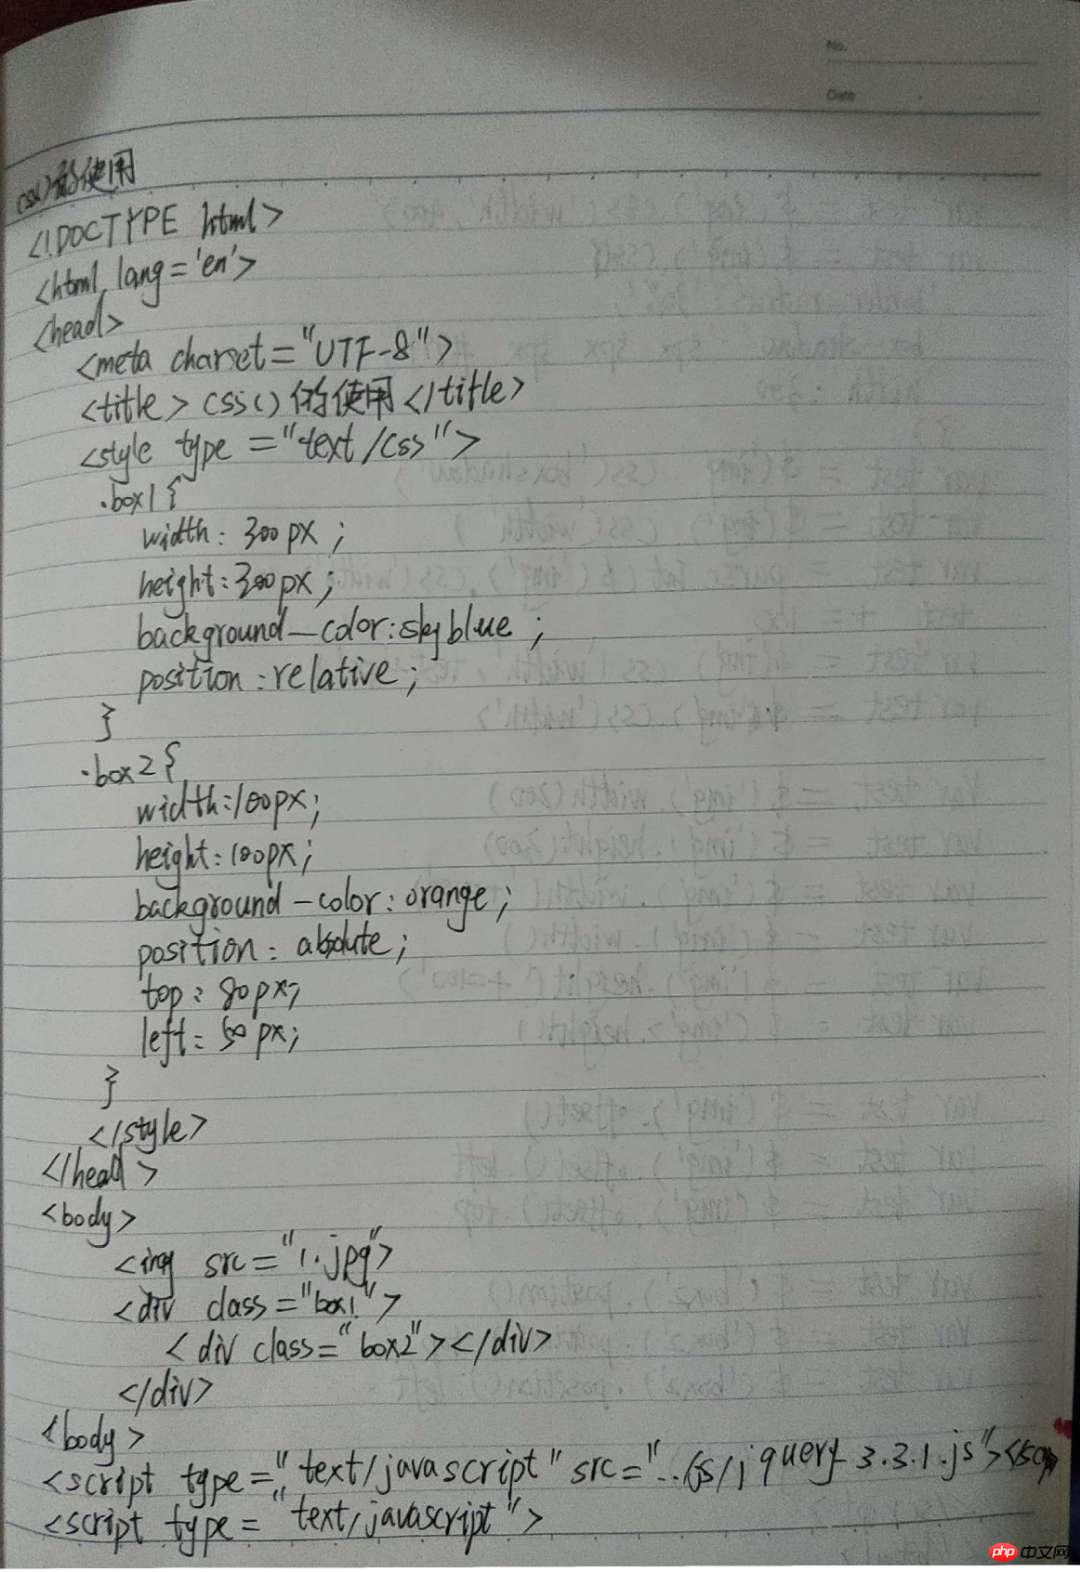 No.
Date
css()的使用
<!DOCTYPE html>
<html lang='en'>
<head>
<meta charset="UTF-8">
<title>css()的使用</title>
<style type="text/css">
.box1{
width: 300px;
height: 300px;
background-color: skyblue;
position: relative;
}
.box2{
width: 100px;
height: 100px;
background-color: orange;
position: absolute;
top: 80px;
left: 50px;
}
</style>
</head>
<body>
<img src="1.jpg">
<div class="box1">
<div class="box2"></div>
</div>
<body>
<script type="text/javascript" src="../js/jquery-3.3.1.js">
<script type="text/javascript">
php中文网